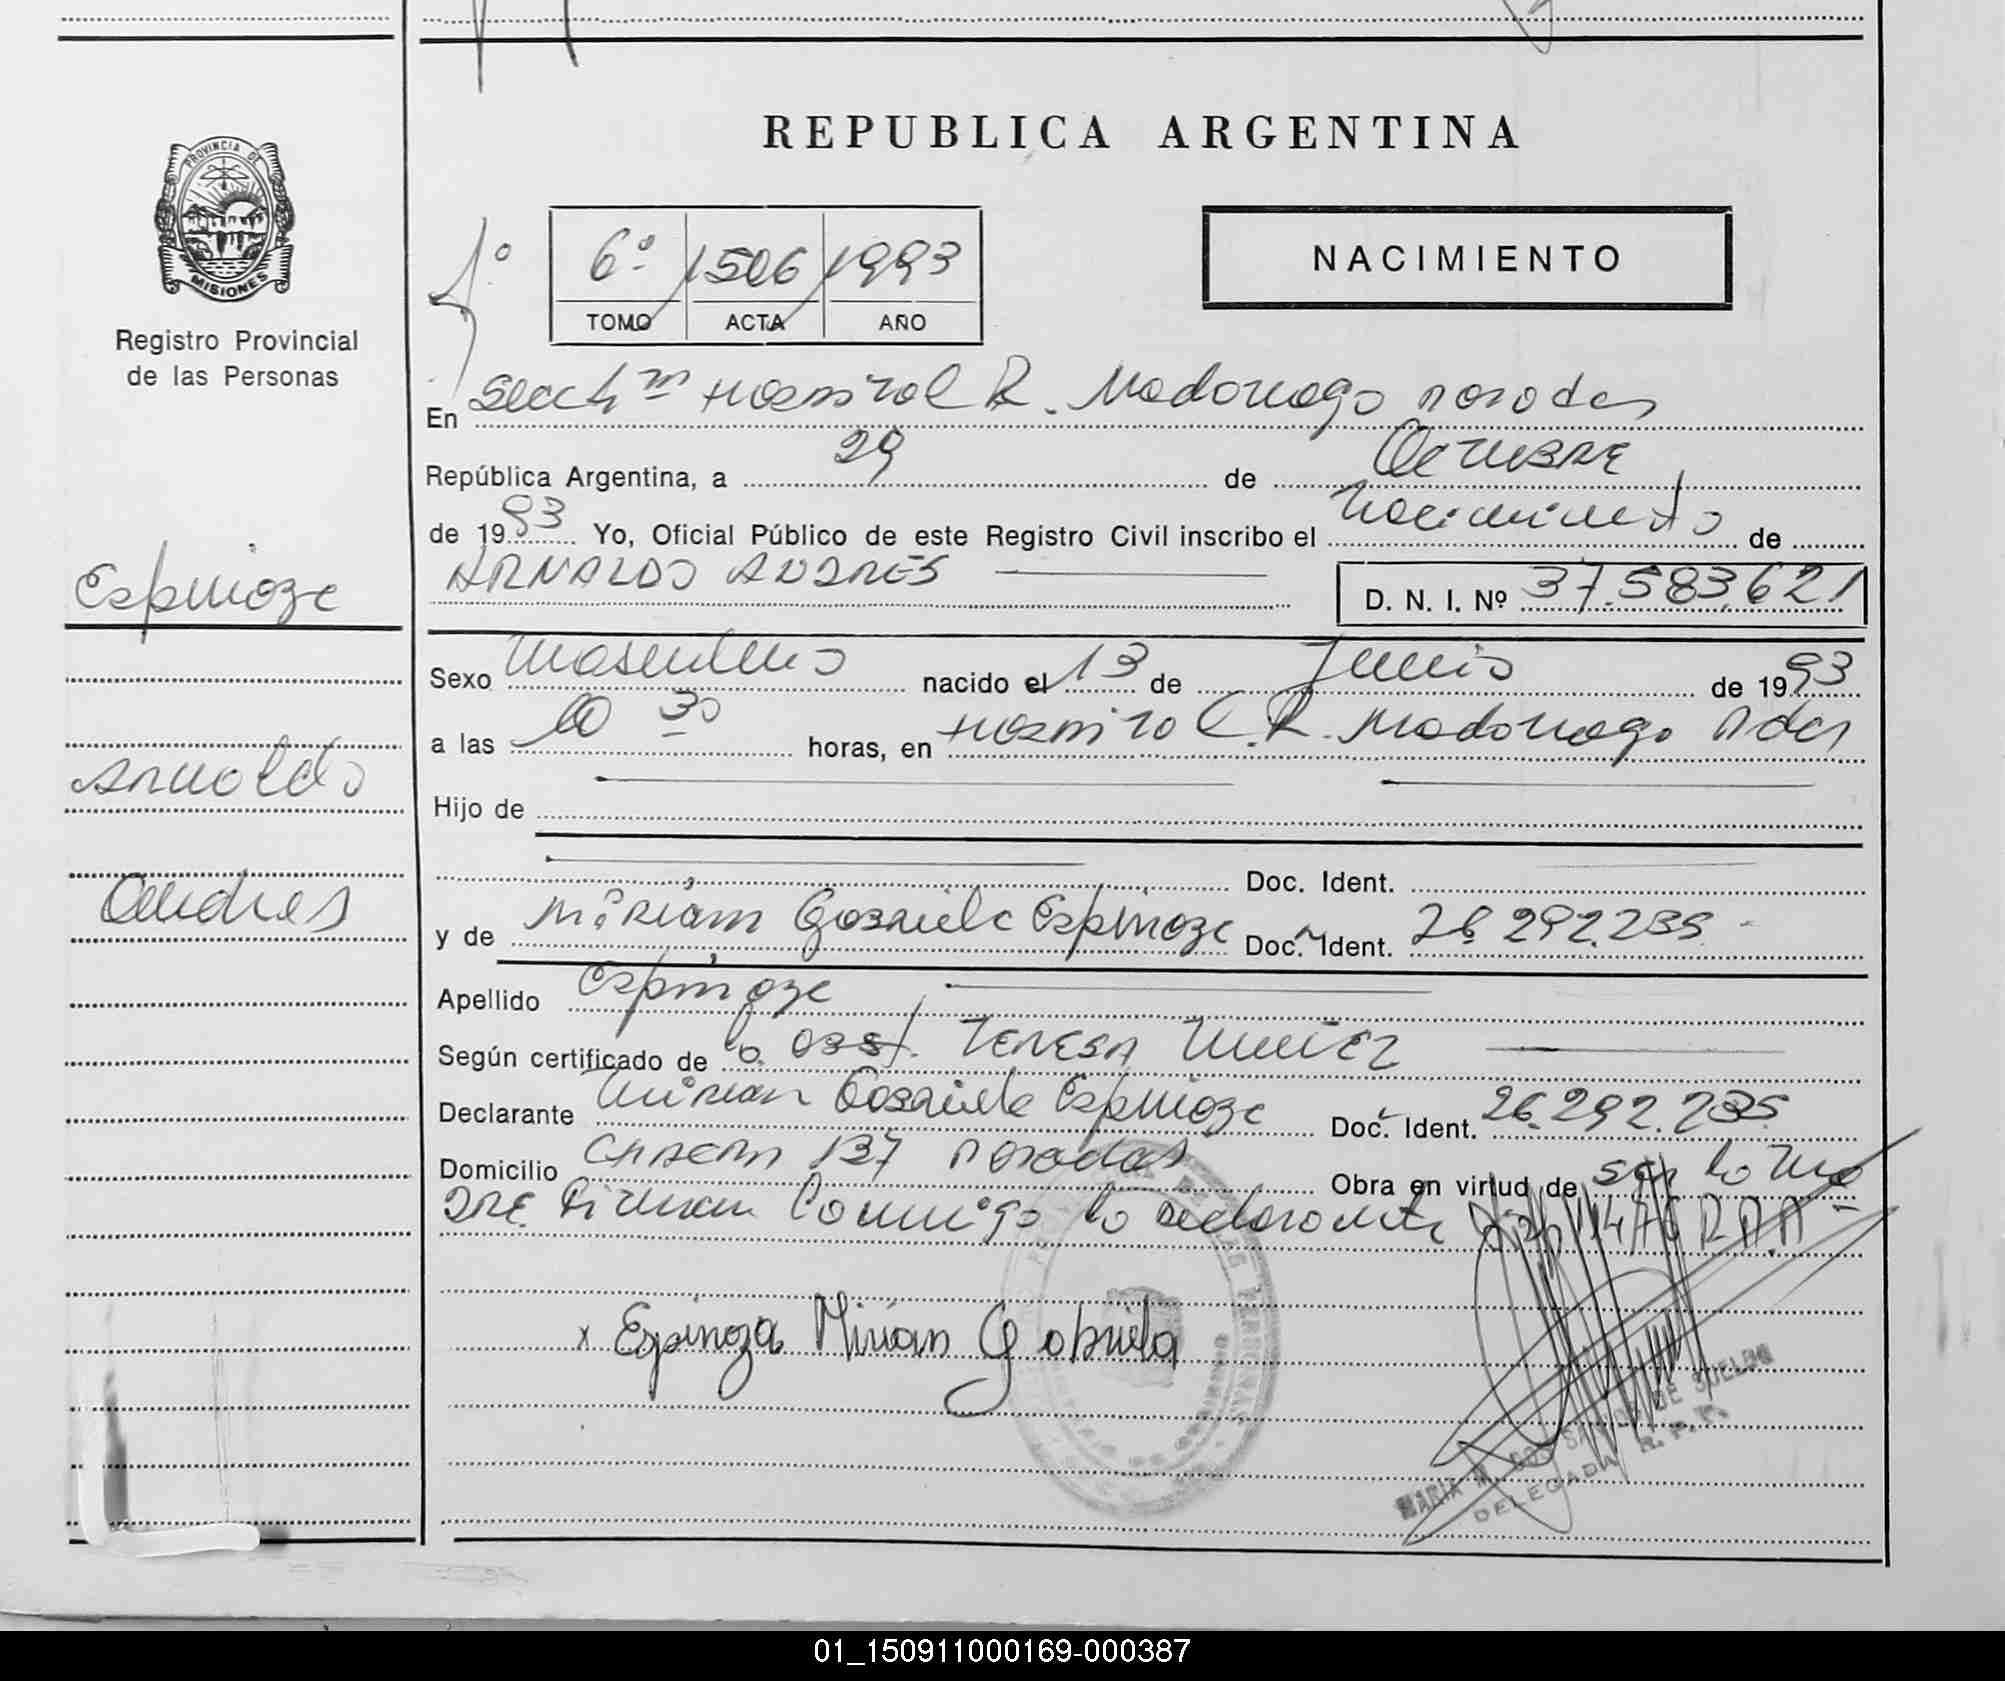 REPUBLICA ARGENTINA
PROVINCIA DE
MISIONES
Registro Provincial
de las Personas
1º
6º 1506 1993
TOMO ACTA AÑO
NACIMIENTO
En Hospital R. Madariaga Posadas
República Argentina, a 29 de Octubre
de 1993 Yo, Oficial Público de este Registro Civil inscribo el nacimiento de
ARNALDO ANDRES
D. N. I. Nº 37.583.621
Espinoza
Arnaldo
Andres
Sexo Masculino nacido el 13 de Junio de 1993
a las 30 horas, en Hospital R. Madariaga Pdas
Hijo de
Doc. Ident.
y de Miriam Gabriela Espinoza Doc. Ident. 26.292.235
Apellido Espinoza
Según certificado de la Obst. TERESA Nuñez
Declarante Mirian Gabriela Espinoza Doc. Ident. 26.292.235
Domicilio CHACRA 137 Posadas Obra en virtud de ser la Ma
dre. Firman Conmigo la declarante
x Espinoza Mirian Gabriela
MARIA M. DOS SANTOS DE SUELDO
DELEGADA R. P. P.
01_150911000169-000387